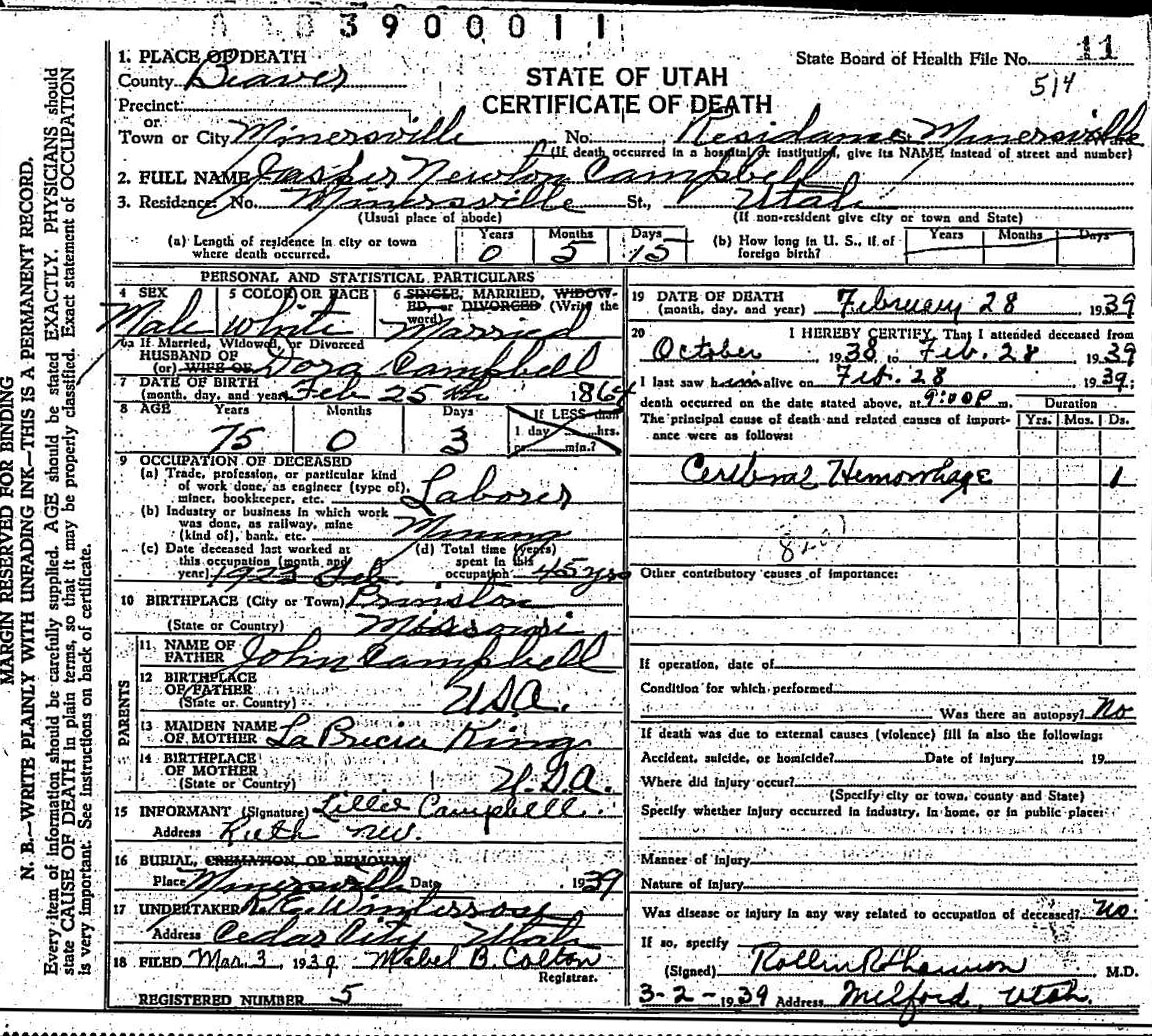 3900011
1. PLACE OF DEATH
State Board of Health File No. 11
County Beaver
STATE OF UTAH
514
Precinct
CERTIFICATE OF DEATH
or
Town or City Minersville No. St. Minersville Ward
(If death occurred in a hospital or institution, give its NAME instead of street and number)
2. FULL NAME Jasper Newton Campbell
3. Residence: No. Minersville St., Utah
(Usual place of abode) (If non-resident give city or town and State)
(a) Length of residence in city or town where death occurred. Years 0 Months 5 Days 15
(b) How long in U. S., if of foreign birth? Years Months Days
MARGIN RESERVED FOR BINDING
N. B.—WRITE PLAINLY WITH UNFADING INK—THIS IS A PERMANENT RECORD.
Every item of information should be carefully supplied. AGE should be stated EXACTLY. PHYSICIANS should
state CAUSE OF DEATH in plain terms, so that it may be properly classified. Exact statement of OCCUPATION
is very important. See instructions on back of certificate.
PERSONAL AND STATISTICAL PARTICULARS
4 SEX Male
5 COLOR OR RACE White
6 SINGLE, MARRIED, WIDOWED or DIVORCED (Write the word) Married
6a If Married, Widowed, or Divorced
HUSBAND OF
(or) WIFE OF Dora Campbell
7 DATE OF BIRTH
(month, day, and year) Feb 25th 1864
8 AGE Years 75 Months 0 Days 3
If LESS than
1 day hrs.
min.?
9 OCCUPATION OF DECEASED
(a) Trade, profession, or particular kind
of work done, as engineer (type of),
miner, bookkeeper, etc. Laborer
(b) Industry or business in which work
was done, as railway, mine
(kind of), bank, etc. Mining
(c) Date deceased last worked at
this occupation (month and
year) Feb.
(d) Total time (years)
spent in this
occupation 45 yrs
10 BIRTHPLACE (City or Town) Prinston
(State or Country) Missouri
PARENTS
11 NAME OF
FATHER John Campbell
12 BIRTHPLACE
OF FATHER
(State or Country) USA.
13 MAIDEN NAME
OF MOTHER King
14 BIRTHPLACE
OF MOTHER
(State or Country) U.S.A.
15 INFORMANT (Signature) Lillie Campbell
Address Ruth Nev.
16 BURIAL, CREMATION, OR REMOVAL
Place Minersville Date 1939
17 UNDERTAKER
Address Cedar City Utah
18 FILED Mar. 3, 1939 Mabel B. Colton
Registrar.
REGISTERED NUMBER 5
19 DATE OF DEATH
(month, day, and year) February 28 1939
20 I HEREBY CERTIFY, That I attended deceased from
October 1938 to Feb. 28 1939
I last saw him alive on Feb. 28 1939;
death occurred on the date stated above, at 9:00 P m. Duration
The principal cause of death and related causes of importance were as follows: Yrs. Mos. Ds.
Cerebral Hemorrhage 1
Other contributory causes of importance:
If operation, date of
Condition for which performed
Was there an autopsy? No
If death was due to external causes (violence) fill in also the following:
Accident, suicide, or homicide? Date of injury 19
Where did injury occur?
(Specify city or town, county and State)
Specify whether injury occurred in industry, in home, or in public place:
Manner of injury
Nature of injury
Was disease or injury in any way related to occupation of deceased? No.
If so, specify
(Signed) M.D.
3-2-1939 Address Milford, Utah.